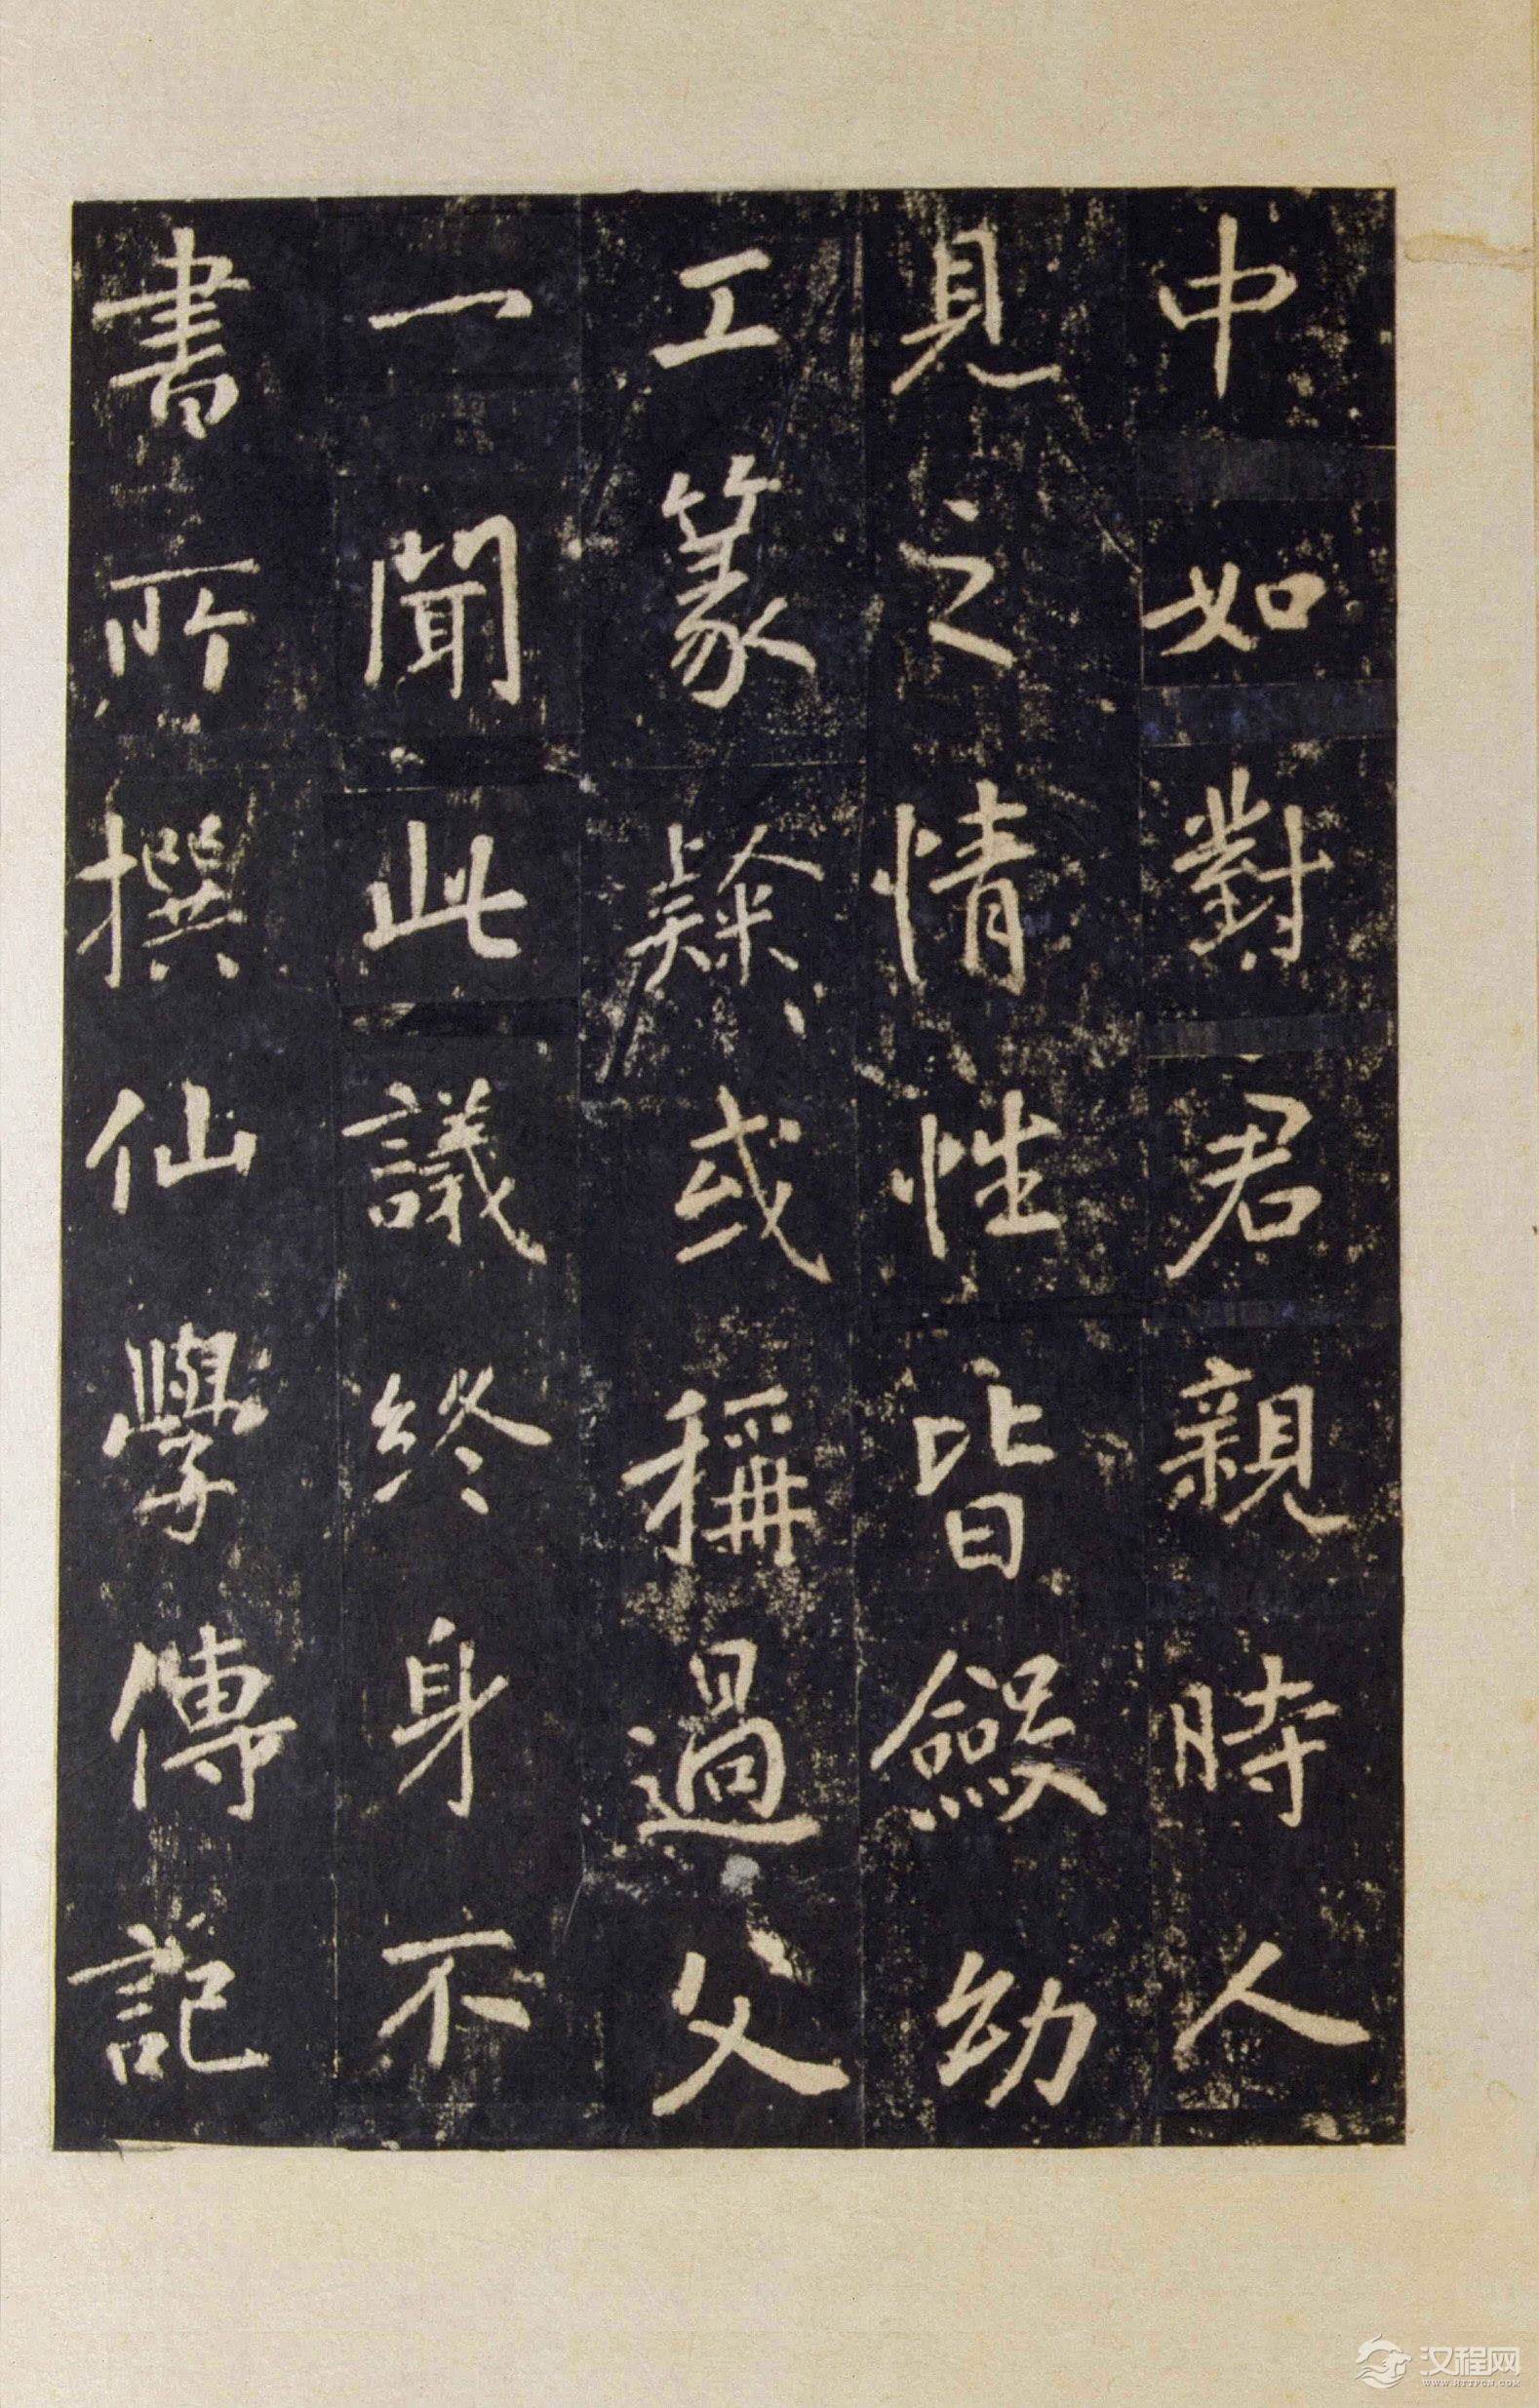 中如對君親時人
見之情性皆斂幼
工篆隸或稱過父
一聞此議終身不
書所撰仙學傳記
汉程网
WWW.HTTPCN.COM